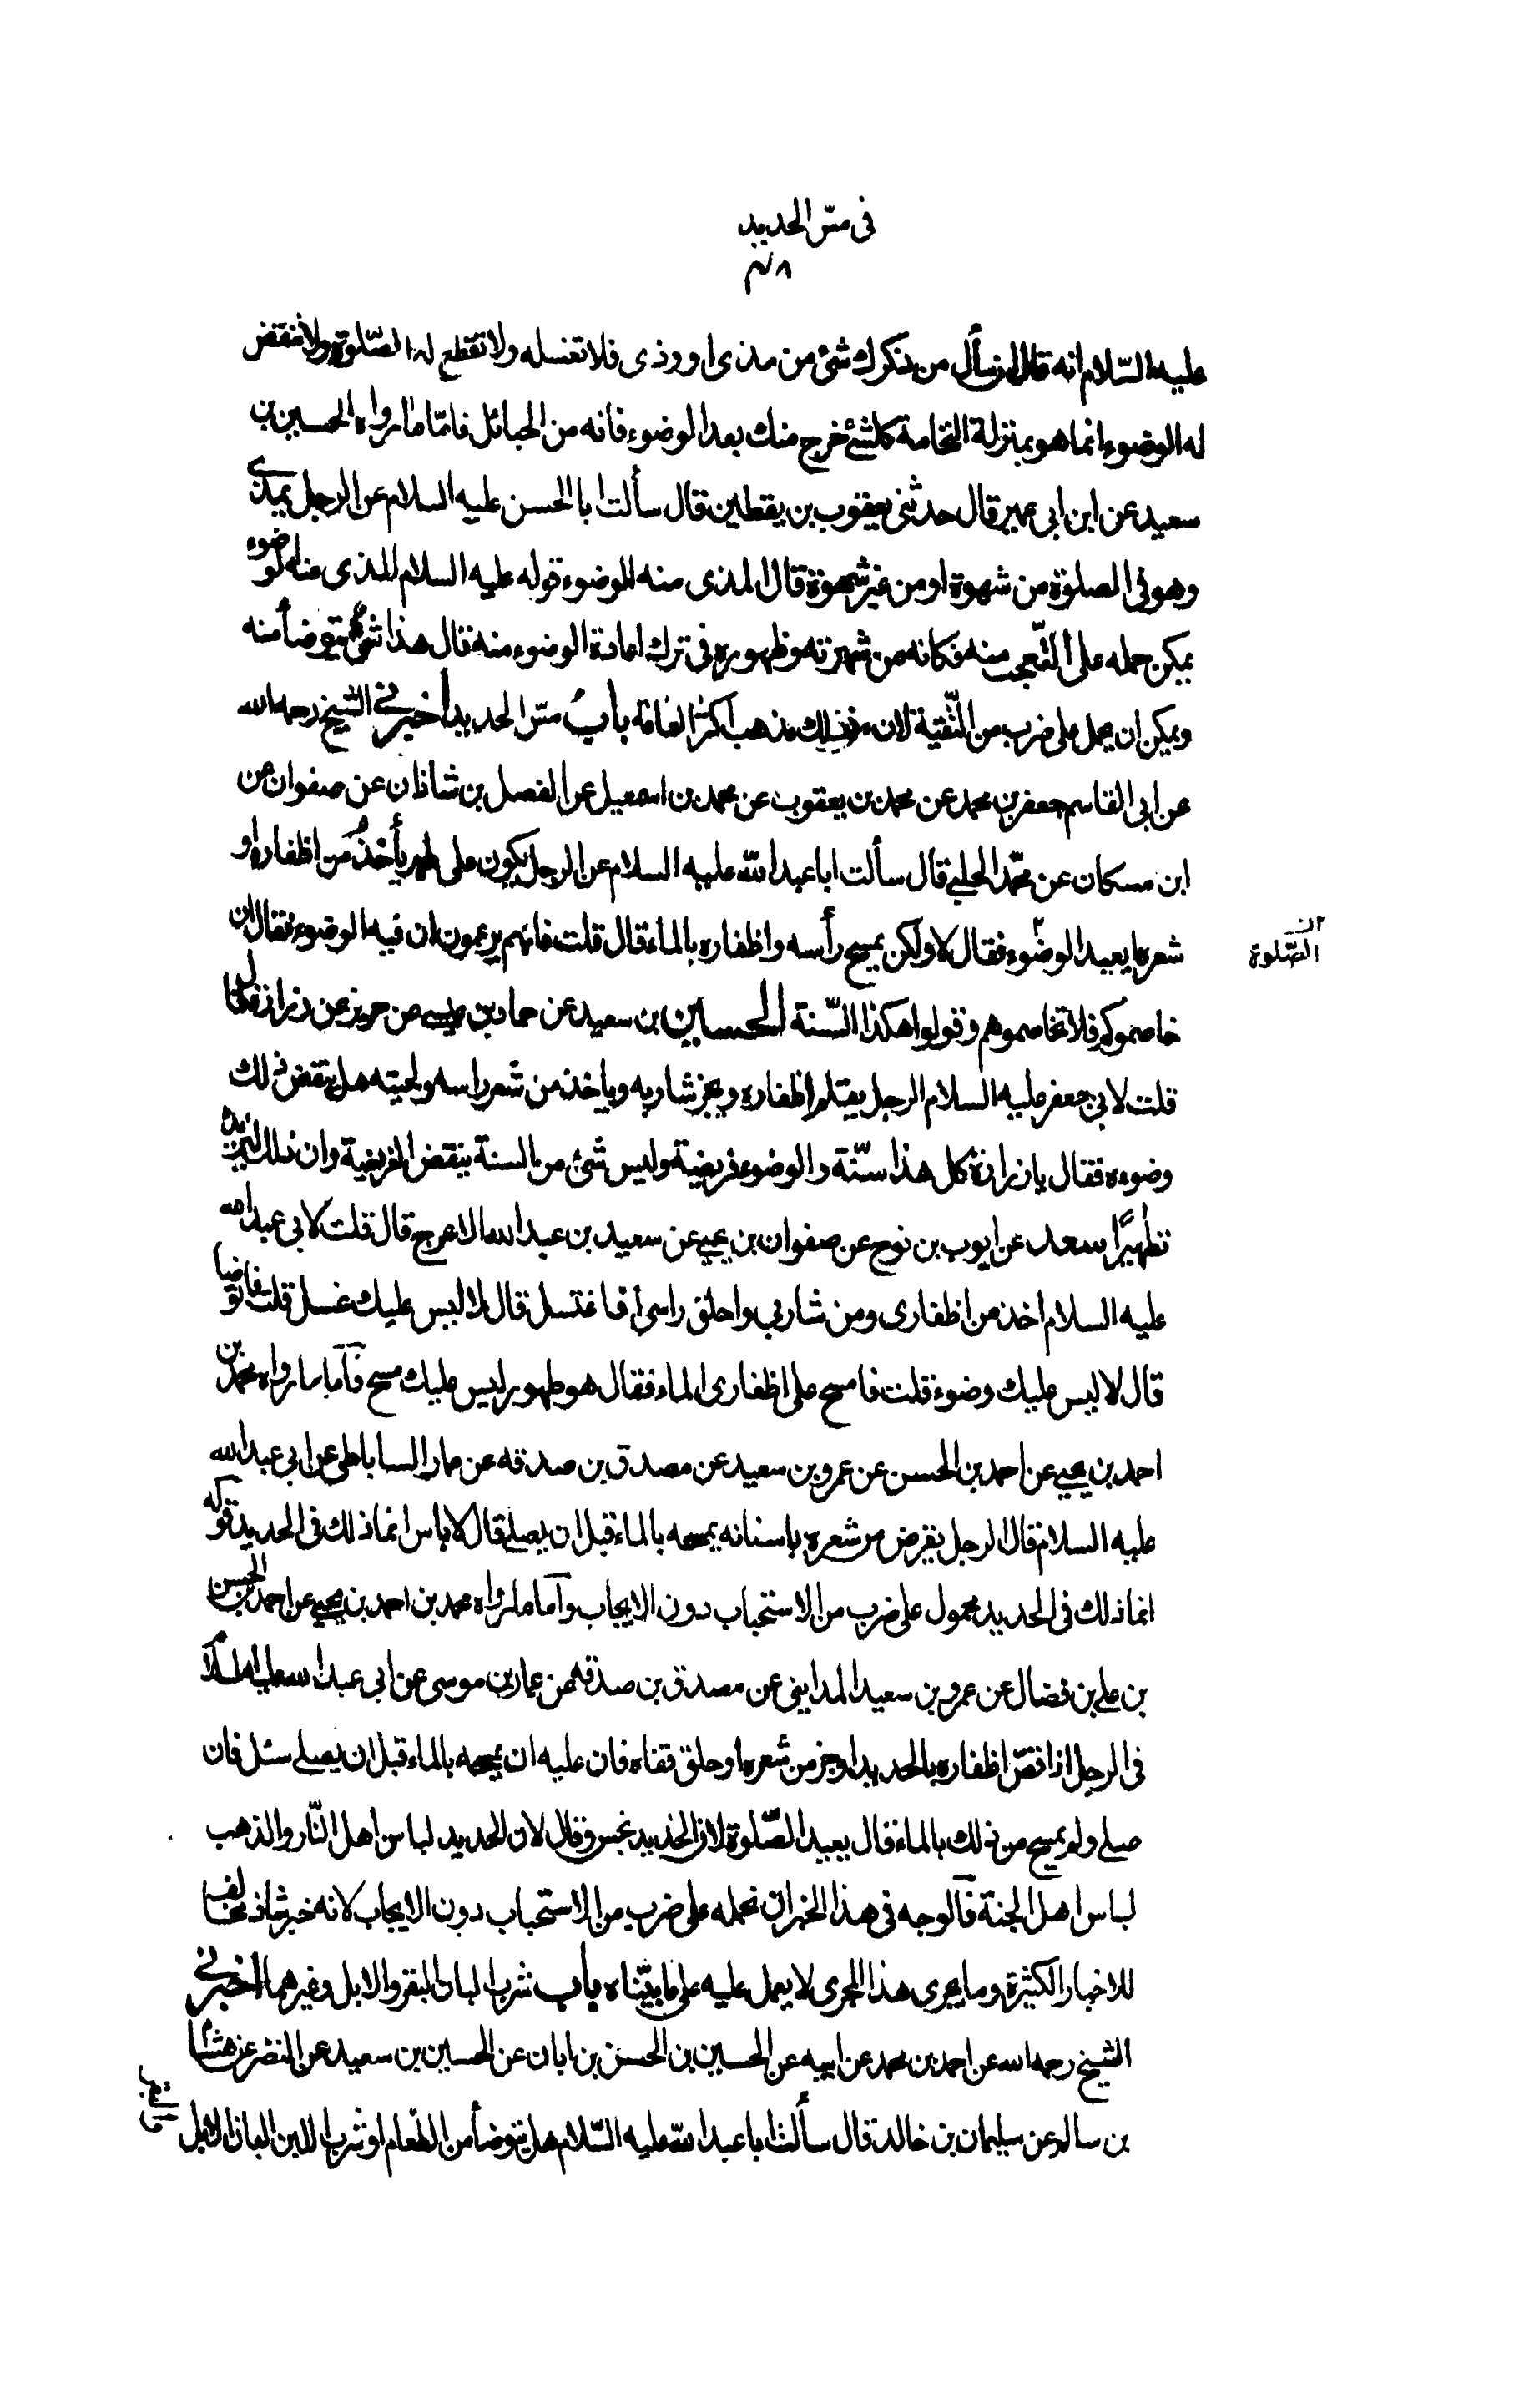 في مسّ الحديد
٤٨
عليه السّلام انه قال ان سأل من ذكرك شئ من مذى او وذى فلا تغسله ولا تقطع له الصّلوة ولا تنقض
له الوضوء انما هو بمنزلة النخامة كلشئ خرج منك بعد الوضوء فانه من الحبائل فامّا ما رواه الحسين بن
سعيد عن ابن ابى عمير قال حدثنى يعقوب بن يقطين قال سألت ابا الحسن عليه السلام عن الرجل يمذى
وهو فى الصلوة من شهوة او من غير شهوة قال المذى منه الوضوء قوله عليه السلام المذى منه الوضوء
يمكن حمله على التّعجب منه فكانه من شهرته وظهوره فى ترك اعادة الوضوء منه قال هذا شئ يتوضأ منه
ويمكن ان يحمل على ضرب من التّقية لان ذلك مذهب اكثر العامة باب مسّ الحديد أخبرني الشيخ رحمه الله
عن ابى القاسم جعفر بن محمد عن محمد بن يعقوب عن محمد بن اسمعيل عن الفضل بن شاذان عن صفوان عن
ابن مسكان عن محمّد الحلبى قال سألت ابا عبد الله عليه السلام عن الرجل يكون على طهر يأخذ من اظفاره او
شعره ايعيد الوضوء فقال لا ولكن يمسح رأسه واظفاره بالماء قال قلت فانهم يزعمون ان فيه الوضوء فقال ان
الصّلوة
خاصموكم فلا تخاصموهم وقولوا هكذا السّنة الحسين بن سعيد عن حماد بن عيسى عن حريز عن زرارة قال
قلت لابى جعفر عليه السلام الرجل يقلم اظفاره ويجز شاربه وياخذ من شعر راسه ولحيته هل ينقض ذلك
وضوءه فقال يا زرارة كل هذا سنّة والوضوء فريضة وليس شئ من السنة ينقض الفريضة وان ذلك ليزيده
تطهيرًا سعد عن ايوب بن نوح عن صفوان بن يحيى عن سعيد بن عبد الله الاعرج قال قلت لابى عبد الله
عليه السلام اخذ من اظفارى ومن شاربى واحلق راسى أفاغتسل قال لا ليس عليك غسل قلت فاتوضأ
قال لا ليس عليك وضوء قلت فامسح على اظفارى الماء فقال هو طهور ليس عليك مسح فامّا ما رواه محمد بن
احمد بن يحيى عن احمد بن الحسن عن عمرو بن سعيد عن مصدق بن صدقه عن عمار الساباطى عن ابى عبد الله
عليه السلام قال الرجل يقرض من شعره باسنانه يمسحه بالماء قبل ان يصلى قال لا باس انما ذلك فى الحديد قوله
انما ذلك فى الحديد محمول على ضرب من الاستحباب دون الايجاب وامّا ما رواه محمد بن احمد بن يحيى عن احمد بن الحسن
بن على بن فضال عن عمرو بن سعيد المداينى عن مصدق بن صدقه عن عمار بن موسى عن ابى عبد الله عليه السلام
فى الرجل اذا قصّ اظفاره بالحديد او جز من شعره او حلق قفاه فان عليه ان يمسحه بالماء قبل ان يصلى سئل فان
صلى ولم يمسح من ذلك بالماء قال يعيد الصّلوة لان الحديد نجس وقال لان الحديد لباس اهل النّار والذهب
لباس اهل الجنة فالوجه فى هذا الخبر ان نحمله على ضرب من الاستحباب دون الايجاب لانه خبر شاذ مخالف
للاخبار الكثيرة وما يجرى هذا المجرى لا يعمل عليه على ما بيّناه باب شرب البان البقر والابل وغيرهما اخبرني
الشيخ رحمه الله عن احمد بن محمد عن ابيه عن الحسين بن الحسن بن ابان عن الحسين بن سعيد عن النضر عن هشام
بن سالم عن سليمان بن خالد قال سألت ابا عبد الله عليه السّلام هل يتوضأ من الطّعام او شرب اللبن البان الابل